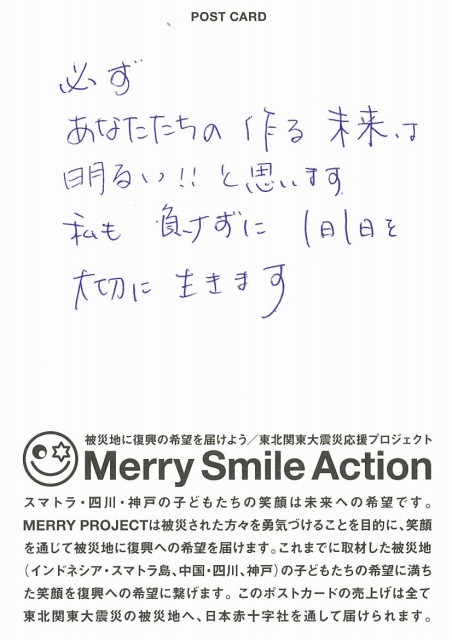 POST CARD
必ず
あなたたちの 作る 未来は
明るい!! と思います
私も 負けずに 1日1日を
大切に 生きます
被災地に復興の希望を届けよう／東北関東大震災応援プロジェクト
Merry Smile Action
スマトラ・四川・神戸の子どもたちの笑顔は未来への希望です。
MERRY PROJECTは被災された方々を勇気づけることを目的に、笑顔
を通じて被災地に復興への希望を届けます。これまでに取材した被災地
（インドネシア・スマトラ島、中国・四川、神戸）の子どもたちの希望に満ち
た笑顔を復興への希望に繋げます。このポストカードの売上げは全て
東北関東大震災の被災地へ、日本赤十字社を通して届けられます。